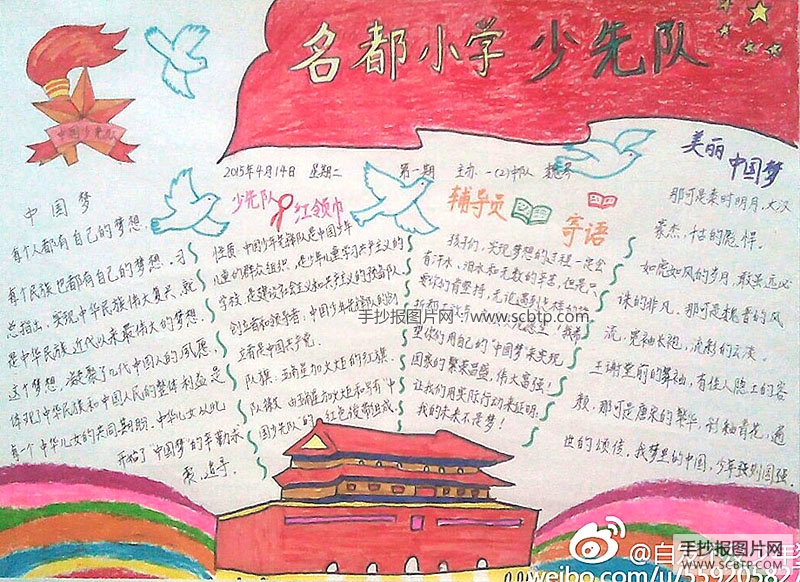 名都小学少先队
中国少先队
2015年4月14日 星期二 第一期 主办:一(2)中队
美丽中国梦
中国梦
每个人都有自己的梦想,
每个民族也都有自己的梦想。习
总指出,实现中华民族伟大复兴,就
是中华民族近代以来最伟大的梦想。
这个梦想,凝聚了几代中国人的夙愿,
体现了中华民族和中国人民的整体利益,是
每一个中华儿女的共同期盼。中华儿女从此
开始了"中国梦"的辛勤求
索、追寻。
少先队 红领巾
性质:中国少年先锋队是中国少年
儿童的群众组织,是少年儿童学习共产主义的
学校,是建设社会主义和共产主义的预备队。
创立者和领导者:中国少年先锋队的创
立者是中国共产党。
队旗:五角星加火炬的红旗。
队徽:由五角星加火炬和写有"中
国少先队"的红色绶带组成
辅导员
寄语
孩子们,实现梦想的过程一定会
有汗水、泪水和无数的辛苦,但是只
要你们肯坚持,无论遇到
望你们用自己的"中国梦"来实现
国家的繁荣昌盛,伟大富强!
让我们用实际行动来证明:
我的未来不是梦!
那可是秦时明月,大汉
豪杰,
如鹿如风的岁月,敢美远必
诛的非凡。那可是魏晋的风
流,宽袖长袍,流彩的云淡。
王谢堂前的舞袖,有佳人隐士的容
颜。那可是唐宋的繁华,
世的颂传。我梦里的中国,少年强则国强。
手抄报图片网:www.scbtp.com
手抄报图片网
www.scbtp.com
@白
weibo.com/u/